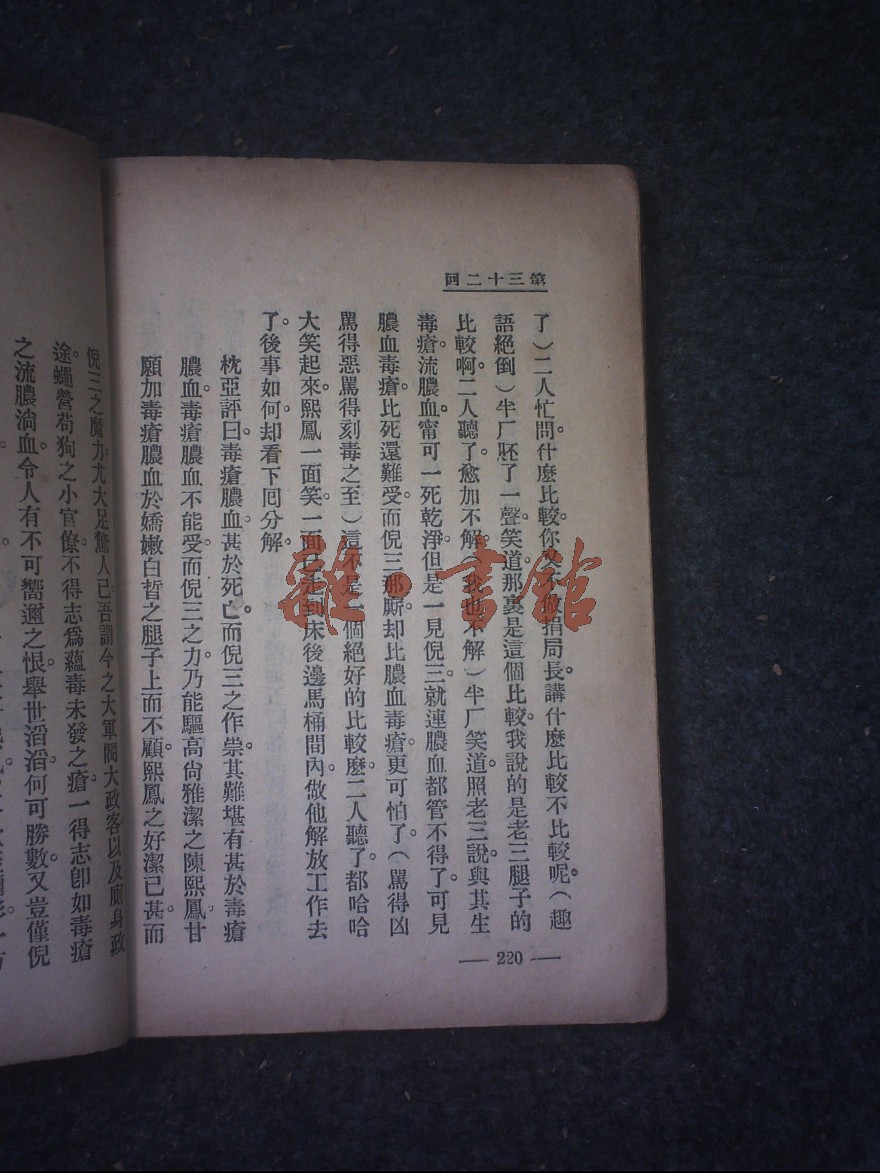 第三十二回
了）二人忙問什麼比較。你又不做捐局長。講什麼比較不比較呢。（趣
語絕倒）半厂呸了一聲。笑道。那裏是這個比較。我說的是老三腿子的
比較啊。二人聽了。愈加不解。（我也不解）半厂笑道。照老三說。與其生
毒瘡。流膿血。甯可一死乾淨。但是一見倪三。就連膿血都管不得了。可見
膿血毒瘡。比死還難受。而倪三那厮。却比膿血毒瘡。更可怕了。（罵得凶
罵得惡罵得刻毒之至）這不是一個絕好的比較麼。二人聽了。都哈哈
大笑起來。熙鳳一面笑。一面已走到床後邊馬桶間內。做他解放工作去
了。後事如何。却看下回分解。
枕亞評曰。毒瘡膿血。甚於死亡。而倪三之作祟。其難堪有甚於毒瘡
膿血。毒瘡膿血不能受。而倪三之力。乃能驅高尙雅潔之陳熙鳳。甘
願加毒瘡膿血於嬌嫩白皙之腿子上而不顧。熙鳳之好潔已甚。而
倪三之魔力尤大足驚人已。吾謂今之大軍閥大政客以及廁身政
途。蠅營苟狗之小官僚。不得志爲蘊毒未發之瘡。一得志卽如毒瘡
之流膿淌血。令人有不可嚮邇之恨。舉世滔滔。何可勝數。又豈僅倪
— 220 —
雜·書館